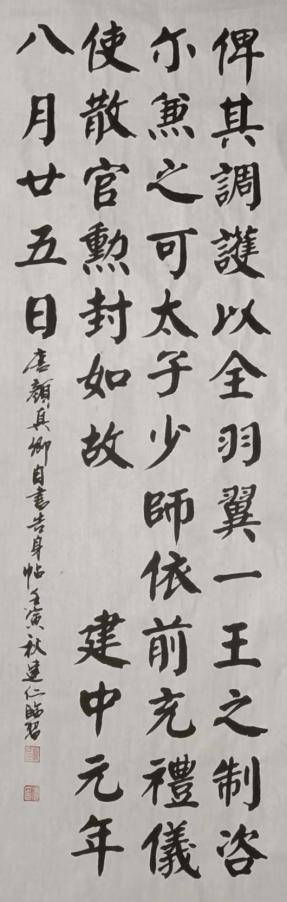 俾其調護以全羽翼一王之制咨
尔兼之可太子少師依前充禮儀
使散官勲封如故 建中元年
八月廿五日
唐顏真卿自書告身帖壬寅秋建仁臨習